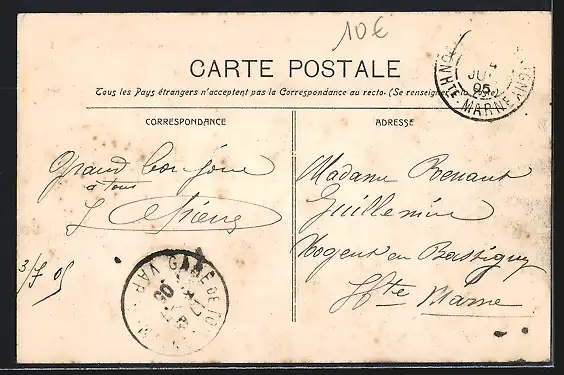 10€
CARTE POSTALE
Tous les Pays étrangers n'acceptent pas la Correspondance au recto. (Se renseigner
CORRESPONDANCE
ADRESSE
Grand bonjour
à tous
Madame Renaut
Guillemine
Nogent en Bassigny
Hte Marne
3/7 05
GARE DE TO
VAR
05
JUI
05
HTE-MARNE